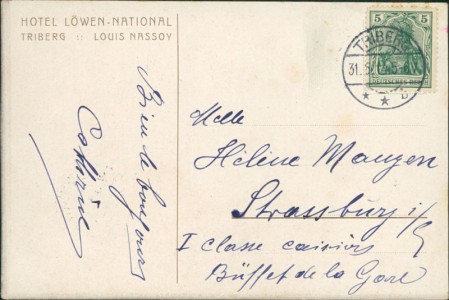 HOTEL LÖWEN-NATIONAL
TRIBERG :: LOUIS NASSOY
5 5
DEUTSCHES REICH
TRIBERG
31.
* * b
Bien le bonjour
Melle
Hélène Mangen
Strassburg i/E
I Classe
Büffet de la Gare